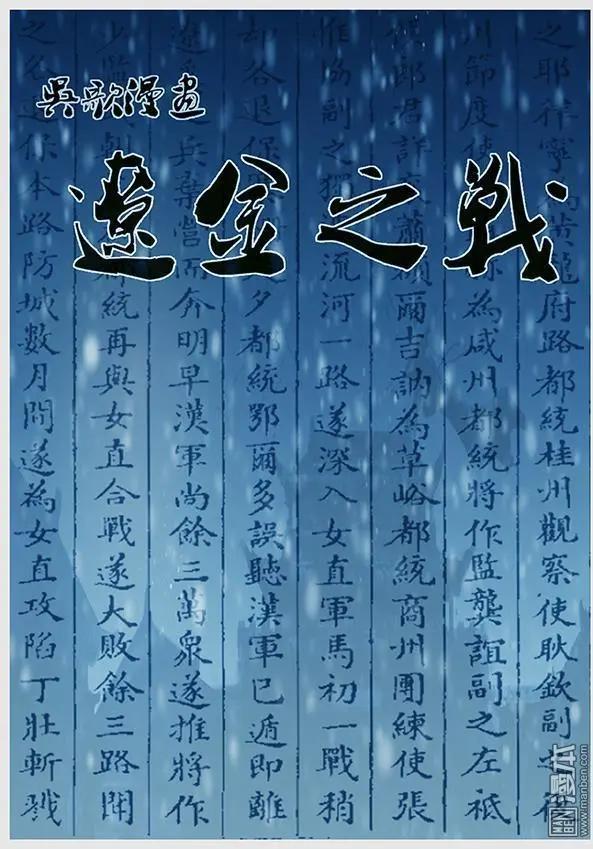 吳歌漫畫
遼金之戰
之耶律寧為黃龍府路都統桂州觀察使耿欽副之
川節度使 為咸州都統將作監龔誼副之左祗
候郎君詳袞蕭 爾吉訥為草峪都統商州團練使張
惟協副之獨 流河一路遂深入女直軍馬初一戰稍
却各退保 夕都統鄂爾多誤聽漢軍已遁即離
遼 兵棄營而奔明早漢軍尚餘三萬眾遂推將作
少監 都統再與女直合戰遂大敗餘三路聞
之各退保本路防城數月間遂為女直攻陷丁壯斬戮
漫本
MANBEN
www.manben.com